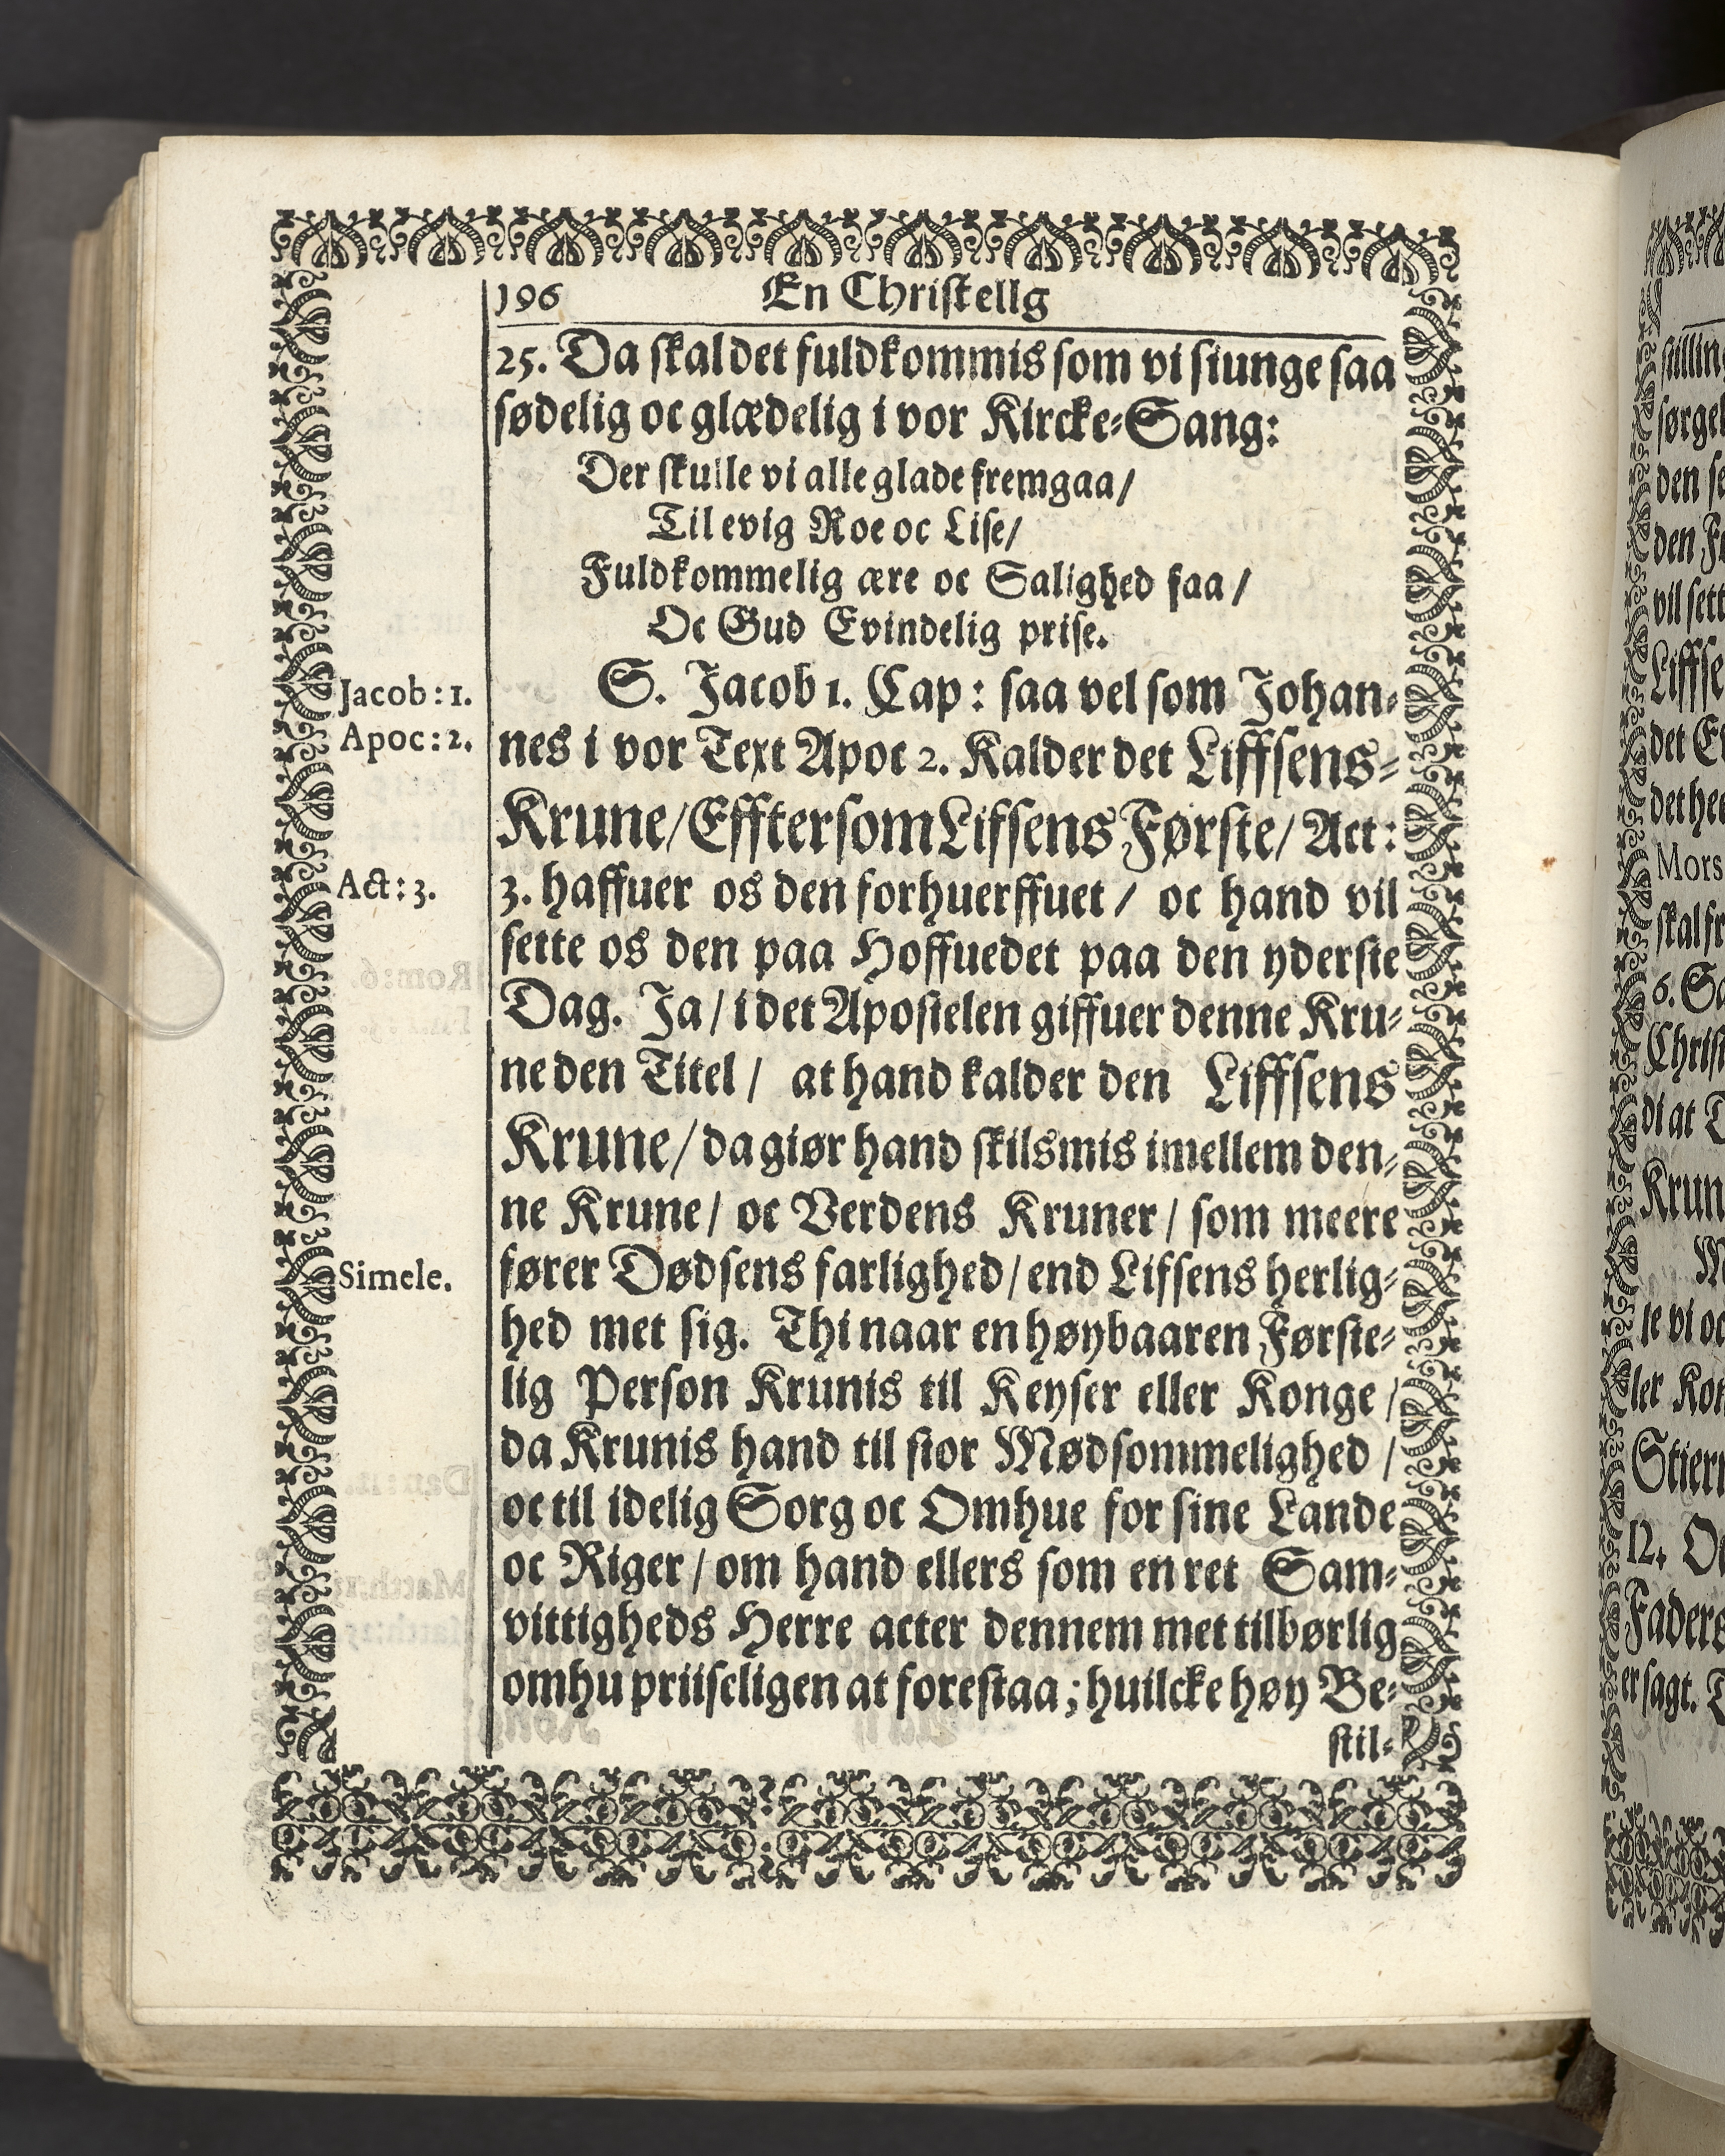 196 En Christellg
25. Da skal det fuldkommis som vi siunge saa
sødelig oc glædelig i vor Kircke-Sang:
Der skulle vi alle glade fremgaa/
Til evig Roe oc Lise/
Fuldkommelig ære oc Salighed faa/
Oc Gud Evindelig prise.
Jacob: 1.
S. Jacob 1. Cap: saa vel som Johan-
Apoc: 2.
nes i vor Text Apoc 2. Kalder det Liffsens-
Krune/Efftersom Lifsens Første/ Act:
Act: 3.
3. haffuer os den forhuerffuet/ oc hand vil
sette os den paa Hoffuedet paa den yderste
Dag. Ja/ i det Apostelen giffuer denne Kru-
ne den Titel/ at hand kalder den Liffsens
Krune/ da giør hand skilsmis imellem den-
ne Krune/ oc Verdens Kruner/ som meere
Simele.
fører Dødsens farlighed/ end Lifsens herlig-
hed met sig. Thi naar en høybaaren Første-
lig Person Krunis til Keyser eller Konge/
da Krunis hand til stor Mødsommelighed/
oc til idelig Sorg oc Omhue for sine Lande
oc Riger/ om hand ellers som en ret Sam-
vittigheds Herre acter dennem met tilbørlig
omhu priiseligen at forestaa; huilcke høy Be-
stil-
den
vil sett
Mors
6.
Krun
12.
er sagt.